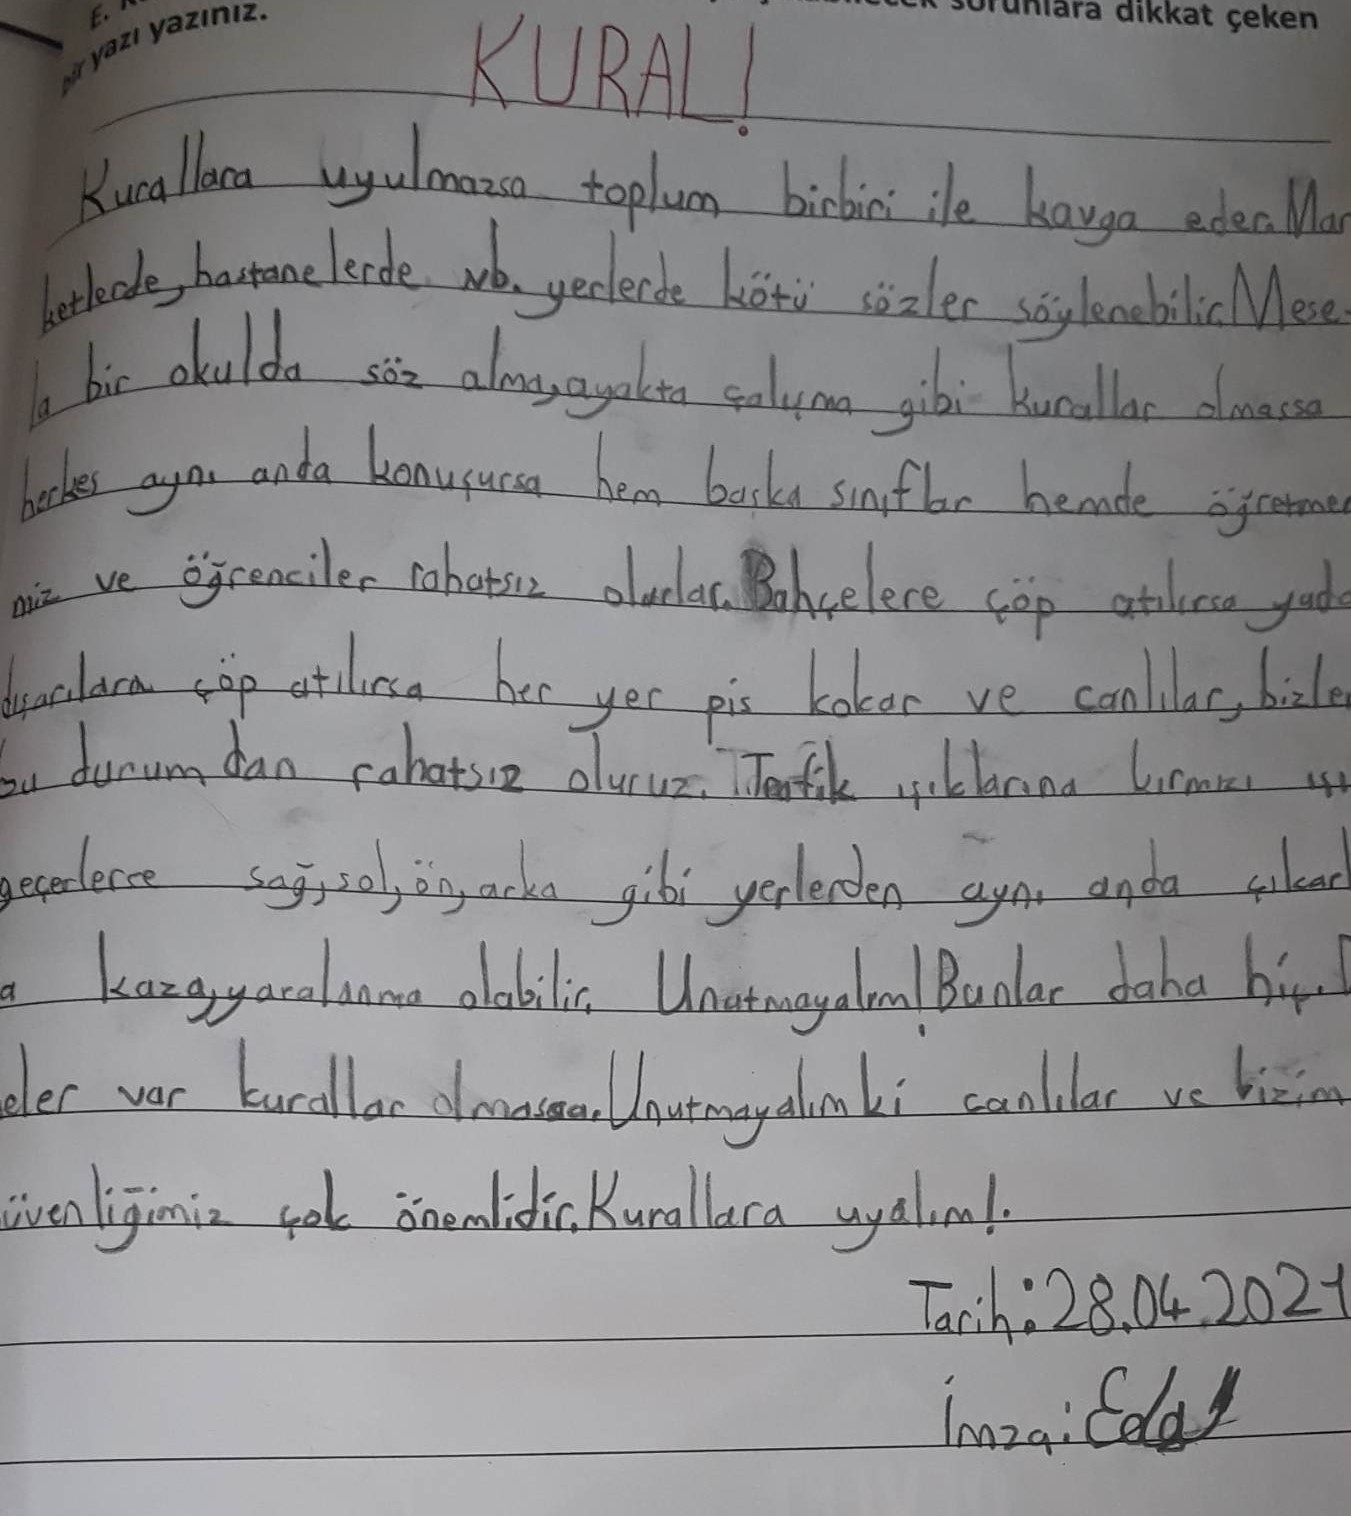 sorunlara dikkat çeken
E.
bir yazı yazınız.
KURAL!
Kurallara uyulmazsa toplum birbiri ile kavga eder. Mar
ketlerde, hastanelerde vb. yerlerde kötü sözler söylenebilir. Mese-
la bir okulda söz alma, ayakta çalışma gibi kurallar olmassa
herkes aynı anda konuşursa hem başka sınıflar hemde öğretme
miz ve öğrenciler rahatsız olurlar. Bahçelere çöp atılırsa yada
dışarılara çöp atılırsa her yer pis kokar ve canlılar, bizle
bu durum dan rahatsız oluruz. Trafik ışıklarına kırmızı ışı
geçerlerse sağ, sol, ön, arka gibi yerlerden aynı anda çıkarl
a kaza, yaralanma olabilir. Unutmayalım! Bunlar daha hiç.
eler var kurallar olmassa. Unutmayalım ki canlılar ve bizim
üvenliğimiz çok önemlidir. Kurallara uyalım!.
Tarih: 28.04.2021
İmza: Eda